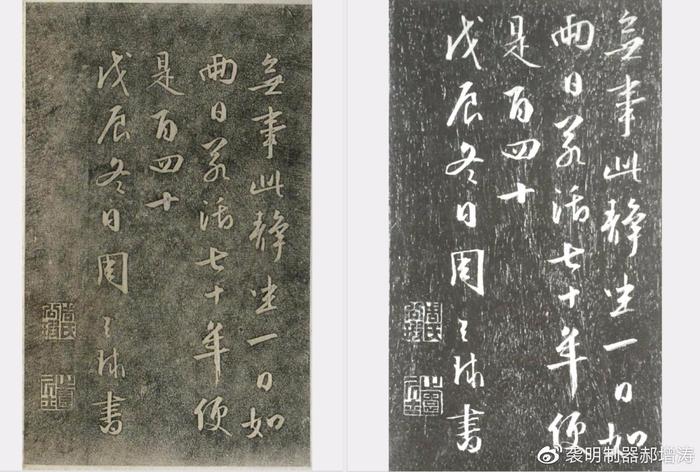 無事此靜坐一日如
兩日若活七十年便
是百四十
戊辰冬日周之書
無事此靜坐一日如
兩日若活七十年便
是百四十
戊辰冬日周之書
@袭明制器郝增涛